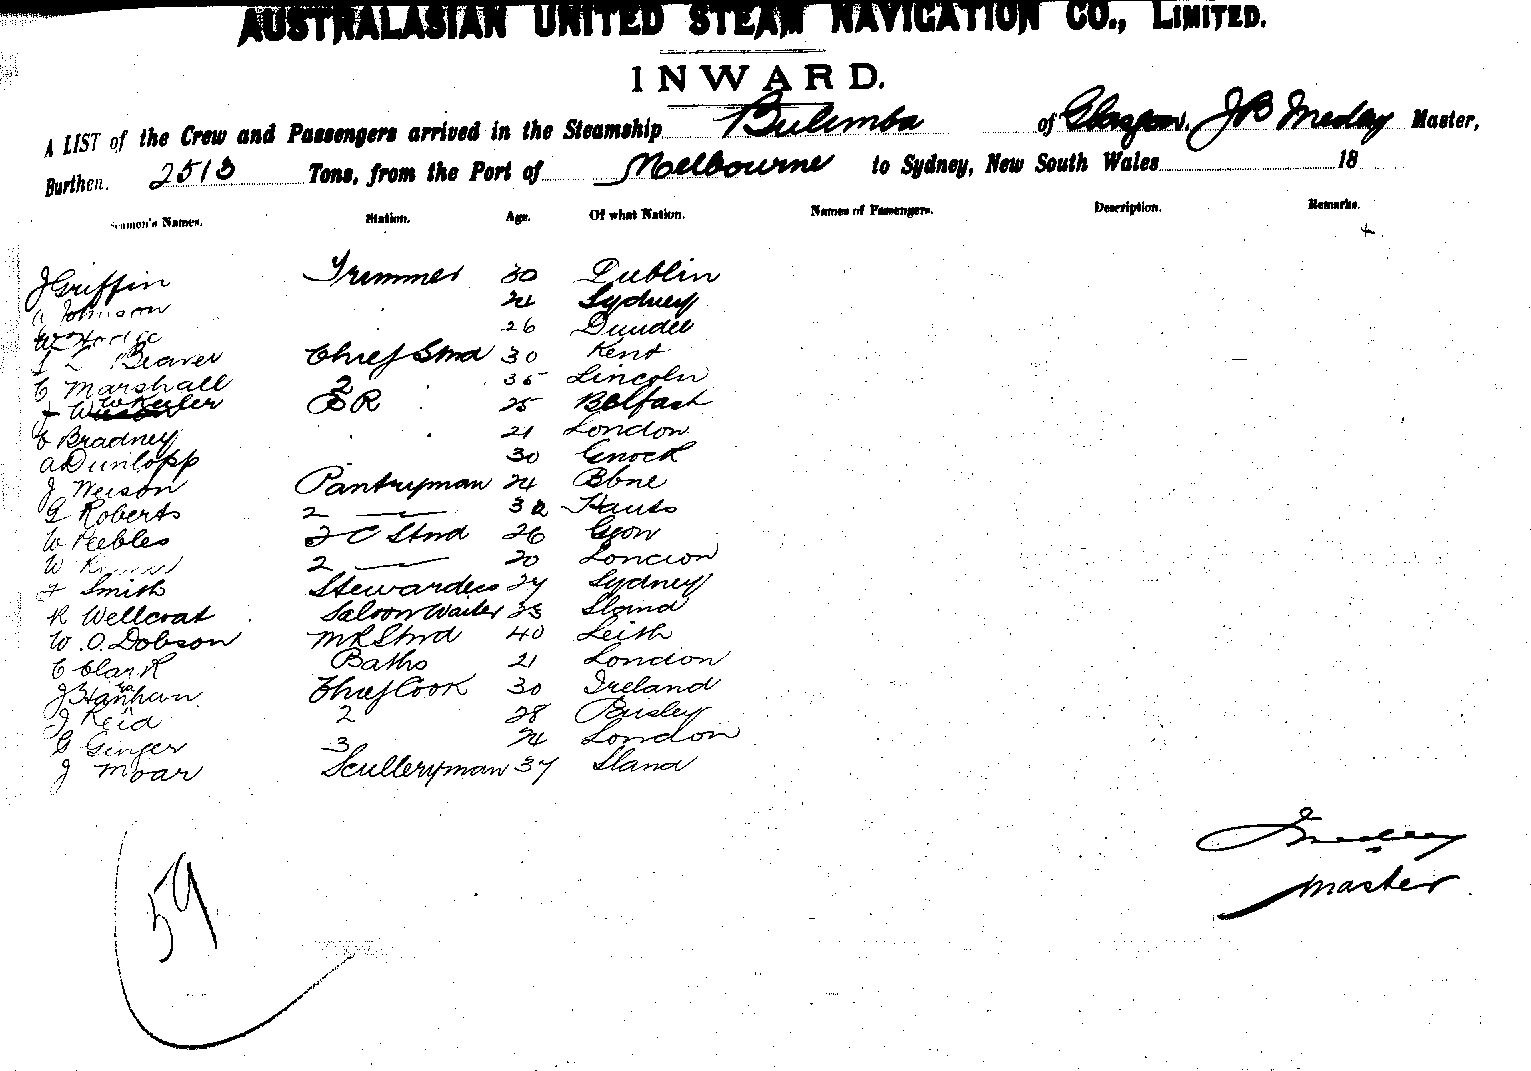 AUSTRALASIAN UNITED STEAM NAVIGATION CO., LIMITED.
INWARD.
A LIST of the Crew and Passengers arrived in the Steamship Bulimba of Glasgow, J B Master,
Burthen. 2513 Tons, from the Port of Melbourne to Sydney, New South Wales 18
Seamen's Names. Station. Age. Of what Nation. Names of Passengers. Description. Remarks.
J Griffin Trimmer 30 Dublin
a Johnson 24 Sydney
W Hodge 26 Dundee
Beaver Chief Stwd 30 Kent
C Marshall 2 35 Lincoln
J Wheeler R 25 Belfast
C Bradney 21 London
a Dunlopp 30 Gnock
J Weison Pantryman 24 Bbne
G Roberts 2 — 32 Hants
W Peebles 2 C Stwd 26 Gow
W 2 — 20 London
Smith Stewardess 27 Sydney
R Wellcoat Saloon Waiter 23 Sland
W. O. Dobson M R Stwd 40 Leith
C Clark Baths 21 London
J Hanhan Chief Cook 30 Ireland
J Reid 2 28 Paisley
G Ginger 3 24 London
J Moar Sculleryman 37 Sland
59
Master